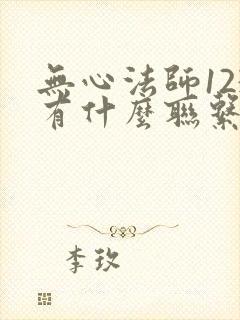 無心法師12
有什麼聯繫
李玫